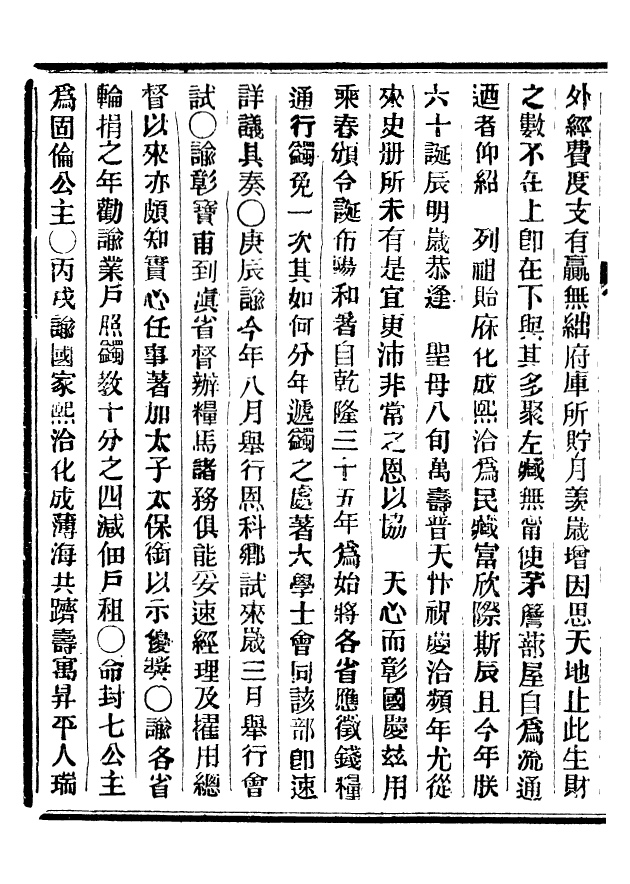 外經費度支有贏無絀府庫所貯月羨歲增因思天地止此生財
之數不在上卽在下與其多聚左藏無甯使茅簷蔀屋自爲流通
迺者仰紹　列祖貽庥化成熙洽爲民藏富欣際斯辰且今年朕
六十誕辰明歲恭逢　聖母八旬萬壽普天忭祝慶洽頻年尤從
來史册所未有是宜更沛非常之恩以協　天心而彰國慶玆用
乘春頒令誕布陽和著自乾隆三十五年爲始將各省應徵錢糧
通行蠲免一次其如何分年遞蠲之處著大學士會同該部卽速
詳議具奏〇庚辰諭今年八月舉行恩科鄉試來歲三月舉行會
試〇諭彰寶甫到滇省督辦糧馬諸務俱能妥速經理及擢用總
督以來亦頗知實心任事著加太子太保銜以示優奬〇諭各省
輪捐之年勸諭業戶照蠲數十分之四減佃戶租〇命封七公主
爲固倫公主〇丙戌諭國家熙洽化成薄海共躋壽寓昇平人瑞